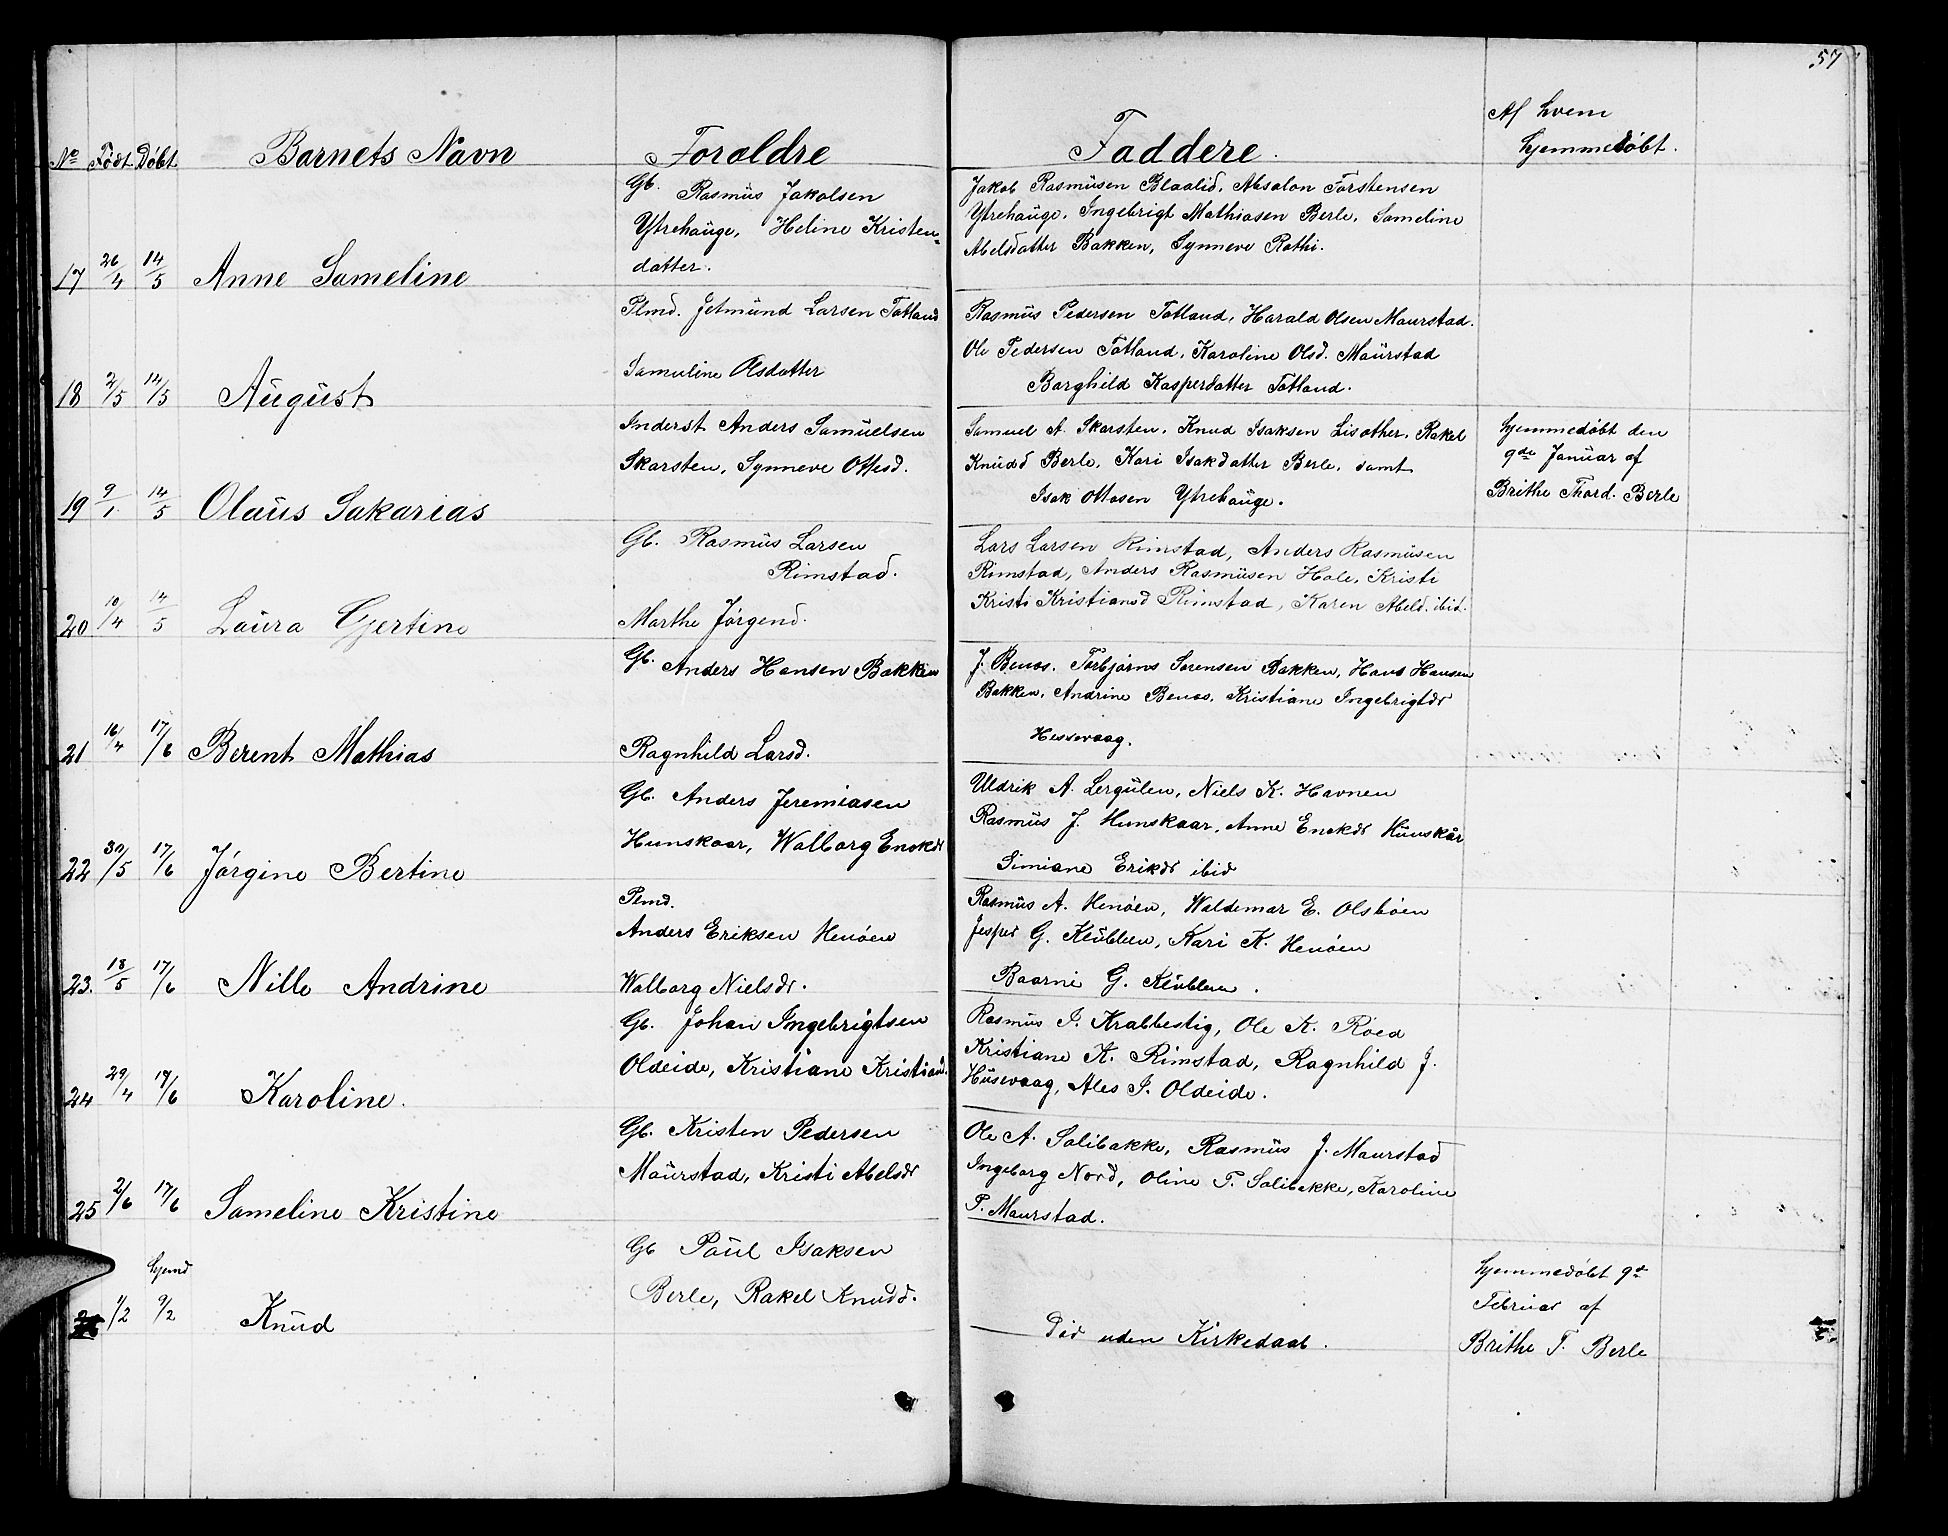 57
No Født Døbt Barnets Navn Foreldre Faddere. Af hvem
hjemmedøbt.
17 26/4 14/5 Anne Sameline
Gb. Rasmüs Jakobsen
Ytrehaüge, Heline Kristen-
datter.
Jakob Rasmüsen Blaalid, Absalon Torstensen
Ytrehaüge, Ingebrigt Mathiasen Berle, Sameline
Abelsdatter Bakken, Synneve Rathi.
18 2/5 14/5 Aügüst
Plmd. Jetmünd Larsen Totland
Samuline Olsdatter
Rasmüs Pedersen Totland, Harald Olsen Maurstad.
Ole Pedersen Totland, Karoline Olsd. Maürstad
Borghild Kasperdatter Totland.
19 9/1 14/5 Olaüs Sakarias
Inderst Anders Samüelsen
Skarsten, Synneve Ottesd.
Samuel A. Skarsten, Knud Isaksen Lisother, Rakel
Knüdsd Berle, Kari Isakdatter Berle, samt
Isak Ottosen Ytrehaüge.
hjemmedøbt den
9de Janüar af
Brithe Thord. Berle
20 10/4 14/5 Laüra Gjertine
Gb. Rasmüs Larsen
Rimstad.
Marthe Jörgend.
Lars Larsen Rimstad, Anders Rasmüsen
Rimstad, Anders Rasmüsen Hole, Kristi
Kristi Kristiansd Rimstad, Karen Abeld. ibid.
21 16/4 17/6 Berent Mathias
Gb. Anders Hansen Bakken
Ragnhild Larsd.
J. Benos. Torbjørns Sørensen Bakken, Hans Hansen
Bakken, Andrine Benos, Kristiane Ingebrigtdr
Hessevaag.
22 30/5 17/6 Jörgine Bertine
Gb. Anders Jeremiasen
Hunskaar, Walborg Enokdr
Uldrik A. Lergülen, Niels K. Havnen
Rasmüs J. Hunskaar, Anne Enokdr Hünskår
Simiane Erikdr ibid
23. 18/5 17/6 Nille Andrine
Plmd.
Anders Eriksen Henøen
Walborg Nielsdr.
Rasmüs A. Henøen, Waldemar E. Olsbøen
Jesper G. Klübben, Kari K. Henøen
Baarni G. Klübben.
24 29/4 17/6 Karoline.
Gb. Johan Ingebrigtsen
Oldeide, Kristiane Kristiand.
Rasmüs I. Krabbestig, Ole K. Röed
Kristiane K. Rimstad, Ragnhild J.
Hüsevaag, Ales I. Oldeide.
25 2/6 17/6 Sameline Kristine
Gb. Kristen Pedersen
Maürstad, Kristi Abelsdr
Ole A. Solibakke, Rasmüs J. Maurstad
Ingeborg Nord, Oline P. Solibakke, Karoline
P. Maurstad.
26 1/2 hjemd 9/2 Knüd
Gb Paül Isaksen
Berle, Rakel Knudd.
Død uden Kirkedaab.
hjemmedøbt 9de
Februar af
Brithe T. Berle